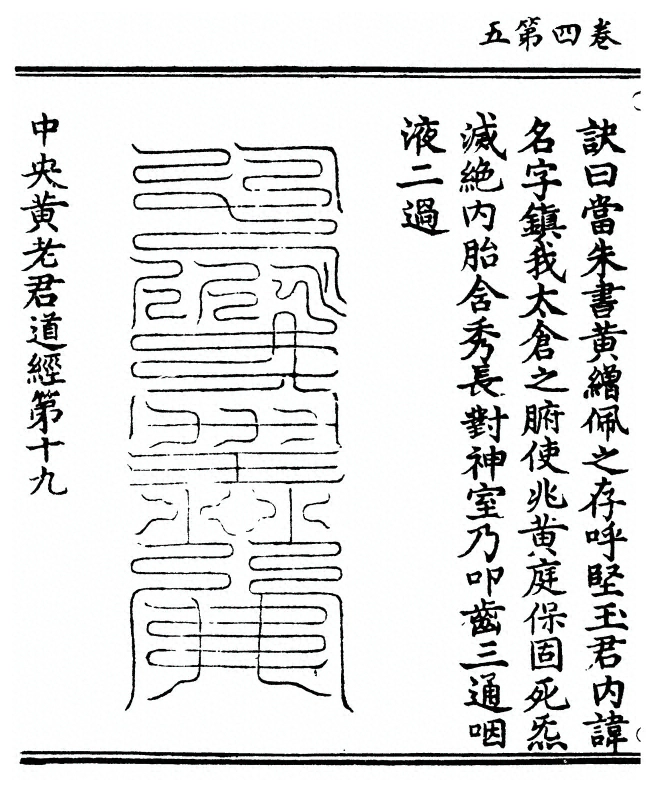 五第四卷
訣曰當朱書黃繒佩之存呼堅玉君內諱
名字鎮我太倉之腑使兆黃庭保固死炁
滅絕內胎含秀長對神室乃叩齒三通咽
液二過
中央黃老君道經第十九